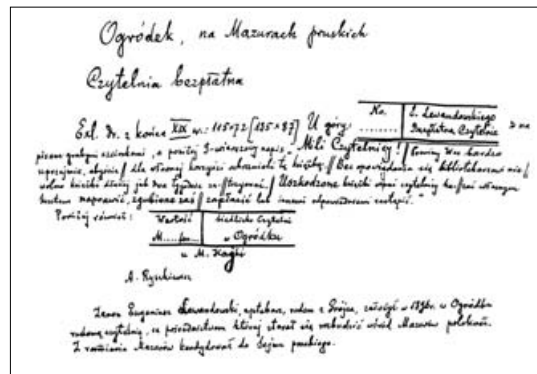 Ogródek, na Mazurach pruskich
Czytelnia bezpłatna
Exl. dr. z końca XIX w.: 115×72 [135×87] U góry: No. ........ Z. Lewandowskiego Bezpłatna Czytelnia
pisane grubymi czcionkami, a poniżej 9-wierszowy napis „Mili Czytelnicy! / Prosimy Was bardzo
uprzejmie, abyście / dla własnej korzyści ochraniali tę książkę. / Bez opowiadania się bibliotekarzowi nie /
wolno książki dłużej jak dwa tygodnie zatrzymać. / Uszkodzone książki winni czytelnicy
kosztem naprawić, zgubione zaś / zapłacić lub innemi odpowiedniemi zastąpić."
Poniżej również: Wartość M.....fen... Biblioteka Czytelni w Ogródku
u M. Kajki
A. Ryszkiewicz
Zenon Eugeniusz Lewandowski, aptekarz, rodem z założył w 1896 r. w Ogródku
ludową czytelnię, za pośrednictwem której starał się rozbudzić wśród Mazurów polskość.
Z ramienia Mazurów kandydował do Sejmu pruskiego.